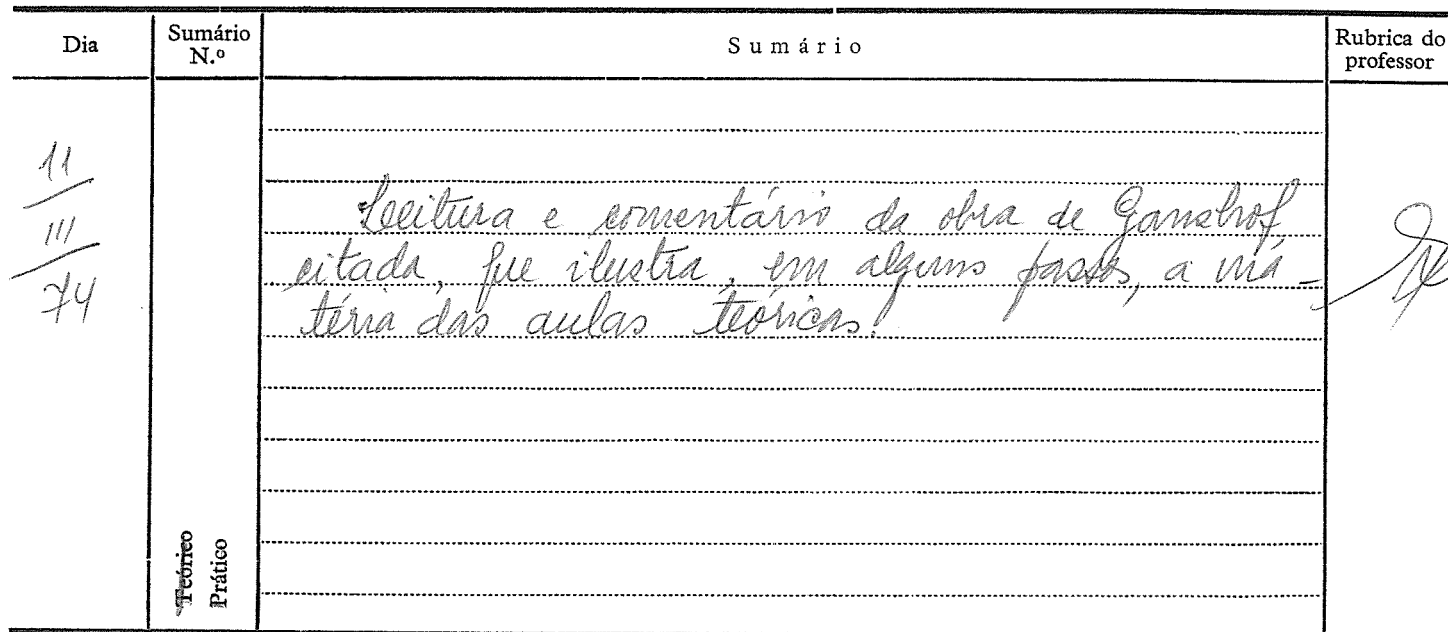 Dia
Sumário N.º
Sumário
Rubrica do professor
11
III
74
Leitura e comentário da obra de Ganshof
citada, que ilustra, em alguns passos, a ma-
téria das aulas teóricas.
Teórico
Prático